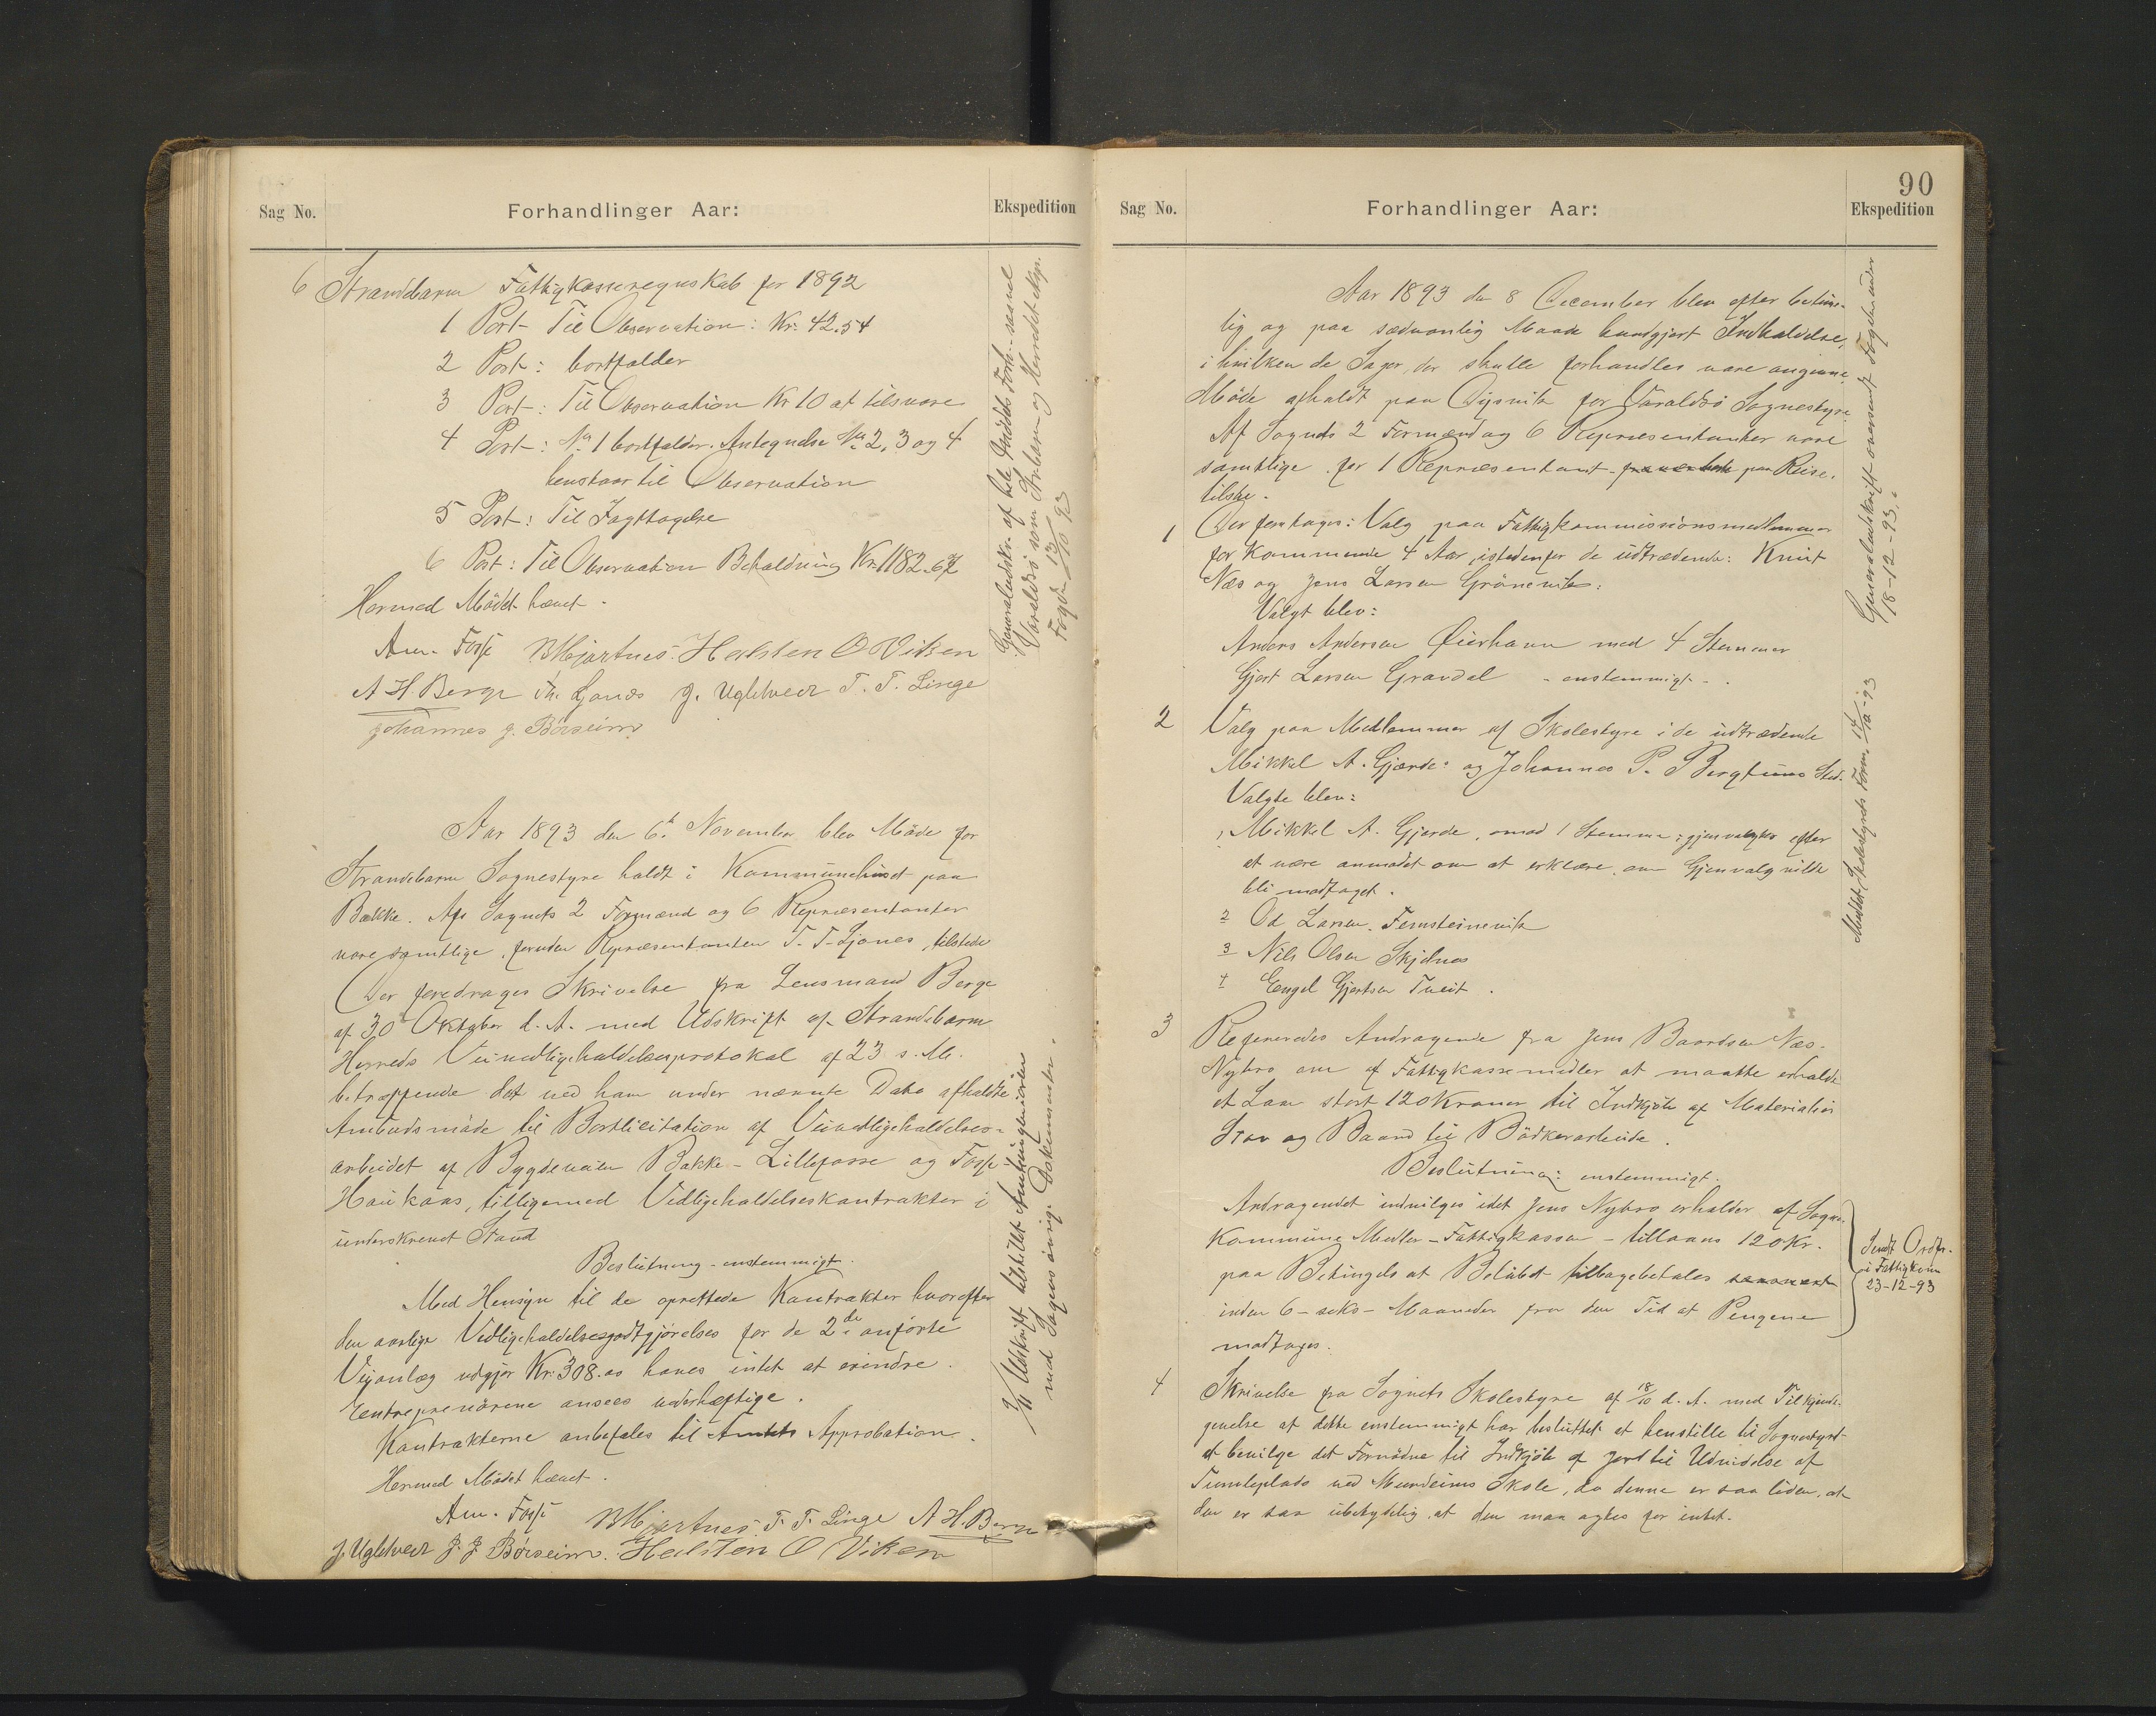 Sag No.
Forhandlinger Aar:
Ekspedition
6 Strandebarm Fattigkasseregnskab for 1892
1 Post Til Observation: Kr. 42.54
2 Post: bortfalder
3 Post: Til Observation Kr 10 at tilsvare
4 Post: No 1 bortfalder. Antegnelse No 2, 3 og 4
henstaar til Observation
5 Post: Til Iagttagelse
6 Post: Til Observation Beholdning Kr. 1182.67
Hermed Mödet hævet.
Am. Fosse NHjartnes. Halsten O Viken
A H. Berge Th. Ljones J. Ugletveit T. T. Linge
Johannes J. Börseim
Generaludskr. af hele
Varaldsö som Strebarm og Herredet eksp.
Fogd. 13/10 93
Aar 1893 den 6te November blev Möde for
Strandebarm Sognestyre holdt i Kommunehuset paa
Bakke. Af Sognets 2 Formænd og 6 Repræsentanter
vare samtlige, foruden Repræsentanten T. T. Ljones, tilstede
Der foredrages Skrivelse fra Lensmand Berge
af 30 Oktober d. A. med Udskrift af Strandebarm
Herreds Veivedligeholdelsesprotokol af 23 s. M.
betræffende det ved ham under nævnte Dato afholdte
Anbudsmöde til Bortlicitation af Veivedligeholdelses-
arbeidet af Bygdeveien Bakke - Lillefosse og Fosse-
Haukaas, tilligemed Vedligeholdelseskontrakter i
underskrevet Stand
Beslutning - enstemmigt.
Med Hensyn til de oprettede Kontrakter hvorefter
den aarlige Vedligeholdelsesgodtgjörelse for de 2de anförte
Veianlæg udgjör Kr. 308.00 haves intet at erindre.
Entreprenörene ansees vederhæftige.
Kontrakterne anbefales til Amtets Approbation.
Hermed Mödet hævet.
Am. Fosse NHjartnes. T. T. Linge A H. Berge
J. Ugletveit J. J Börseim. Halsten O Viken
9/11 Udskrift tilstillet Amtsingeniören
med Sagens övrige Dokumenter.
90
Sag No.
Forhandlinger Aar:
Ekspedition
Aar 1893 den 8 December blev efter betime-
lig og paa sædvanlig Maade kundgjort Indkaldelse,
i hvilken de Sager, der skulle forhandles vare angivne,
Möde afholdt paa Öysvik for Varaldsö Sognestyre
Af Sognets 2 Formænd og 6 Repræsentanter vare
samtlige, for 1 Repræsentant paa Reise,
tilstede.
1 Der foretages: Valg paa Fattigkommissionsmedlemmer
for kommende 4 Aar, istedenfor de udtrædende: Knut
Næs og Jens Larsen Grönevik:
Valgt blev:
Anders Andersen Öierhavn med 4 Stemmer
Gjert Larsen Gravdal - enstemmigt -.
2 Valg paa Medlemmer af Skolestyre i de udtrædende
Mikkel A. Gjerde og Johannes P. Bergtuns Sted.
Valgte blev:
1 Mikkel A. Gjerde, imod 1 Stemme, gjenvalgtes efter
at være anmodet om at erklære, om Gjenvalg vilde
bli modtaget.
2 Od Larsen Femsteinevik
3 Nils Olsen Skjelnes
4 Engel Gjertsen Tveit.
3 Refereredes Andragende fra Jens Baardsen Næs-
Nybro om af Fattigkassemidler at maatte erholde
et Laan stort 120 Kroner til Indkjöb af Materialier
Stav og Baand til Bödkerarbeide.
Beslutning: enstemmigt.
Andragendet indvilges idet Jens Nybro erholder af Sogne-
kommune Midler - Fattigkassen - tillaans 120 Kr.
paa Betingelse at Belöbet tilbagebetales senest
inden 6 - seks - Maaneder fra den Tid at Pengene
modtages.
4 Skrivelse fra Sognets Skolestyre af 18/10 d. A. med Tilkjende-
givelse at dette enstemmigt har besluttet at henstille til Sognestyret
at bevilge det Fornödne til Indkjöb af Jord til Udvidelse af
Tumleplads ved Mundeims Skole, da denne er saa liden, at
den er saa ubetydelig, at den maa agtes for intet.
Generaludskrift oversendt Fogden under
18-12-93.
Meddelt Skolestyrets Form. 14/12-93
Sendt Ordf.
i Fattigkom
23-12-93